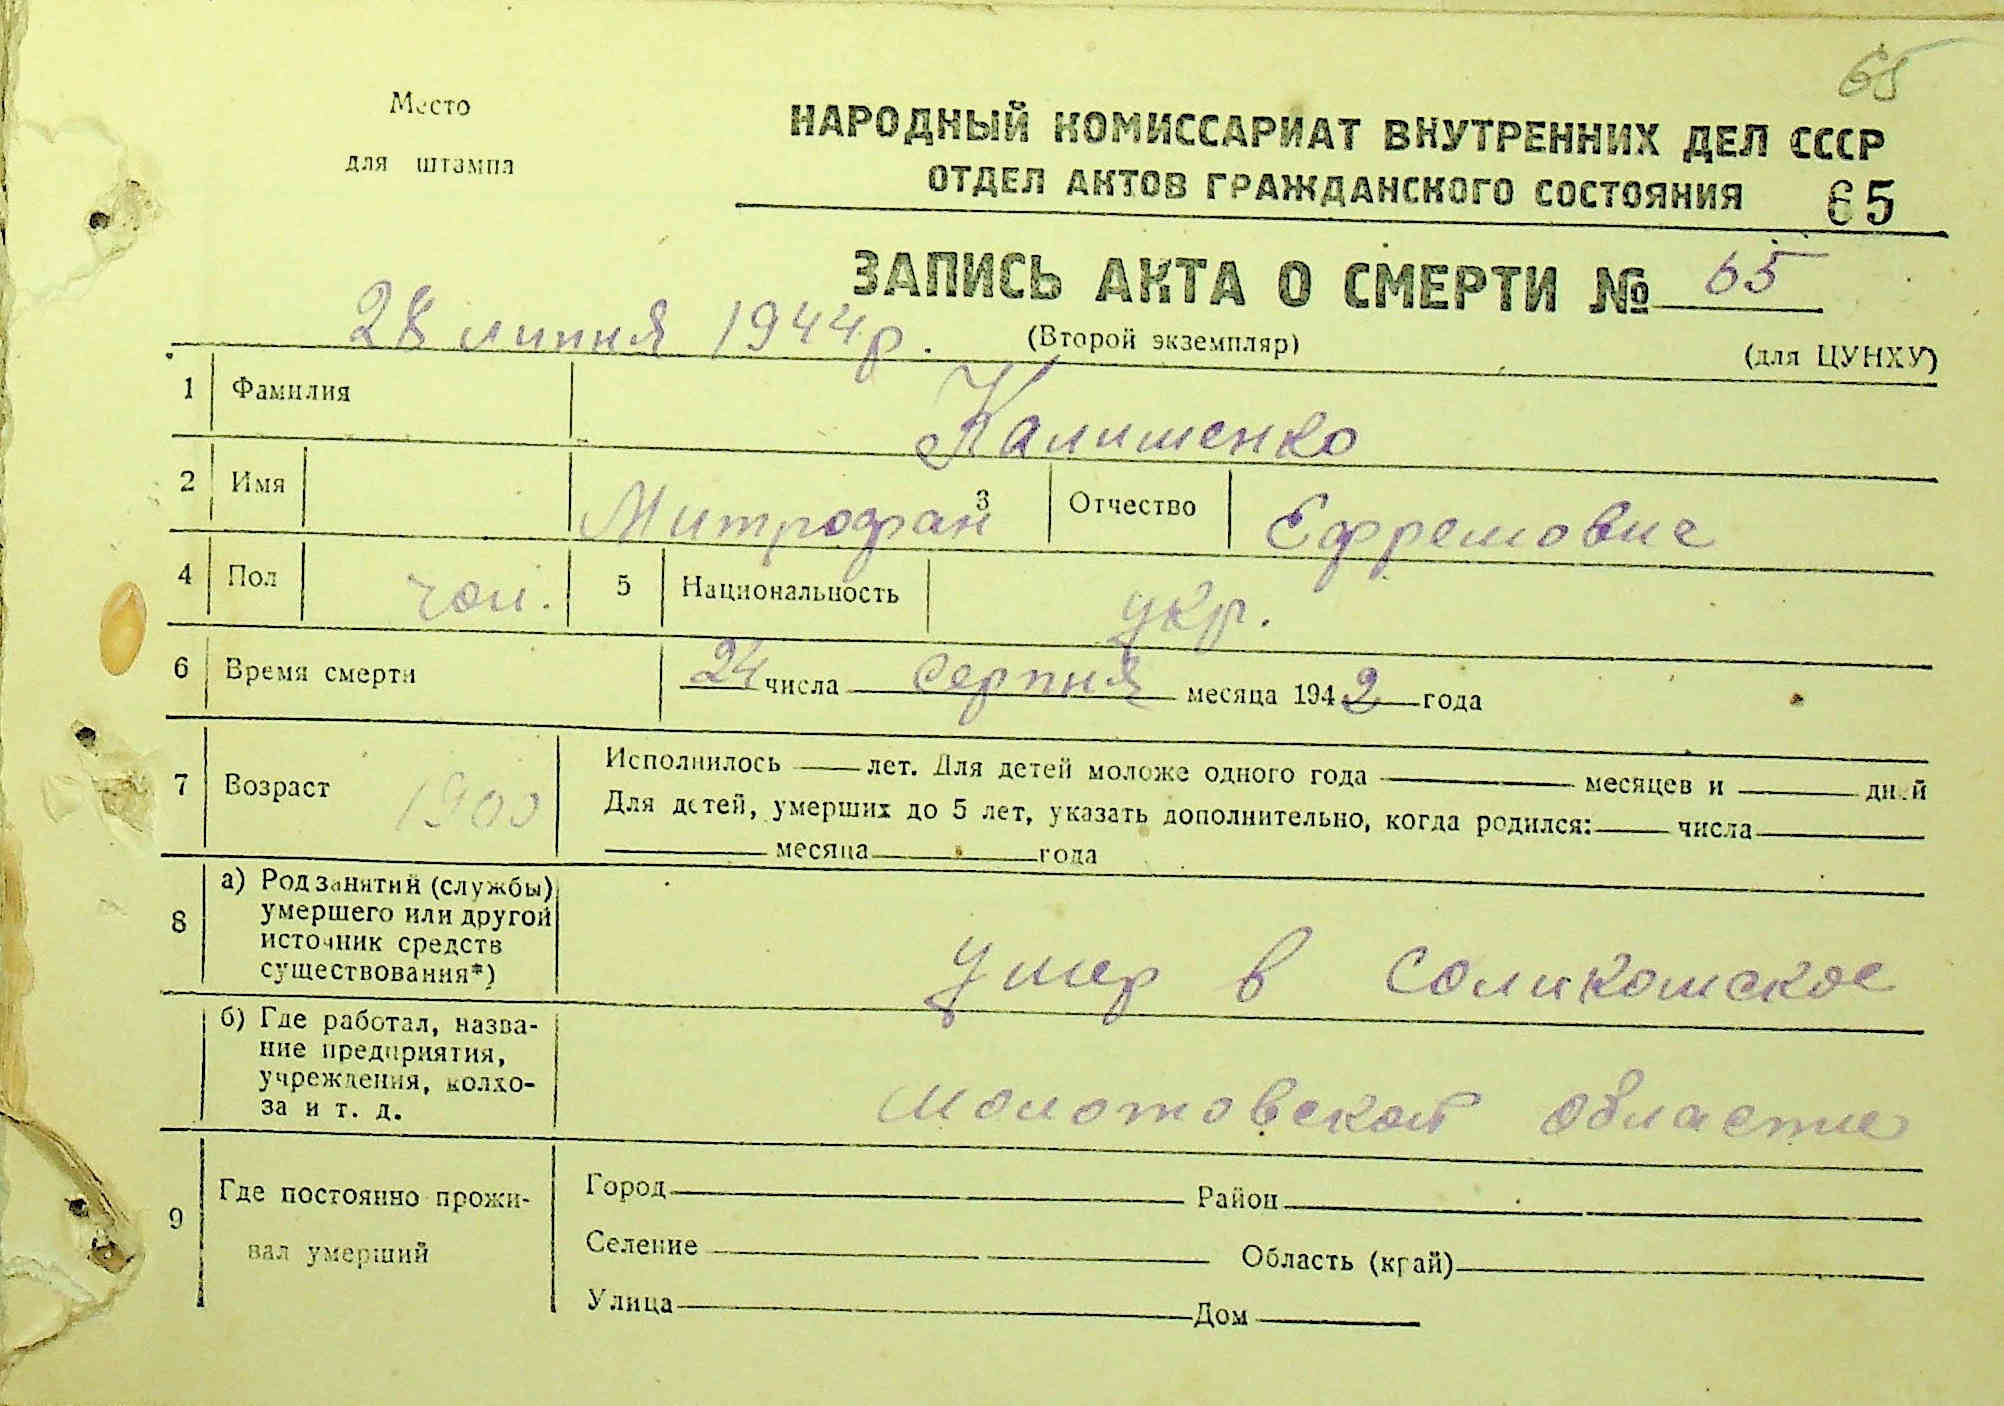 65
Место
для штампа
НАРОДНЫЙ КОМИССАРИАТ ВНУТРЕННИХ ДЕЛ СССР
ОТДЕЛ АКТОВ ГРАЖДАНСКОГО СОСТОЯНИЯ 65
ЗАПИСЬ АКТА О СМЕРТИ № 65
28 липня 1944 р. (Второй экземпляр) (для ЦУНХУ)
1 Фамилия Калишенко
2 Имя Митрофан 3 Отчество Ефремович
4 Пол чол. 5 Национальность укр.
6 Время смерти 24 числа серпня месяца 1942 года
7 Возраст 1900 Исполнилось лет. Для детей моложе одного года месяцев и дней
Для детей, умерших до 5 лет, указать дополнительно, когда родился: числа
месяца года
8 а) Род занятий (службы)
умершего или другой
источник средств
существования*)
умер в Соликомское
б) Где работал, назва-
ние предприятия,
учреждения, колхо-
за и т. д.
Молотовской области
9 Где постоянно прожи-
вал умерший
Город Район
Селение Область (край)
Улица Дом